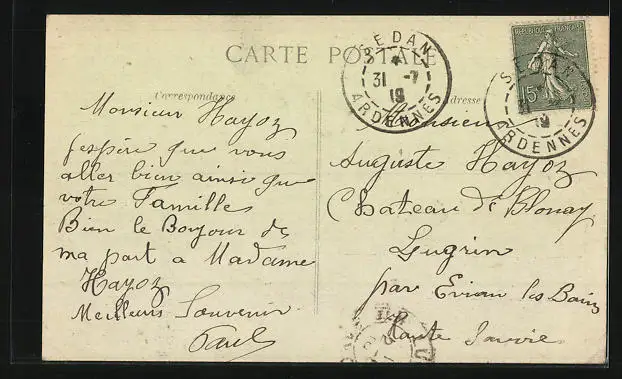 CARTE POSTALE
Correspondance
Adresse
SEDAN
31 -7
19
ARDENNES
REPUBLIQUE FRANÇAISE
15c
SEDAN
19
ARDENNES
Monsieur Hayoz
j'espère que vous
aller bien ainsi que
votre Famille
Bien le Bonjour de
ma part à Madame
Hayoz
Meilleurs Souvenir
Paul
Monsieur
Auguste Hayoz
Chateau de Blonay
Lugrin
par Evian les Bains
Haute Savoie